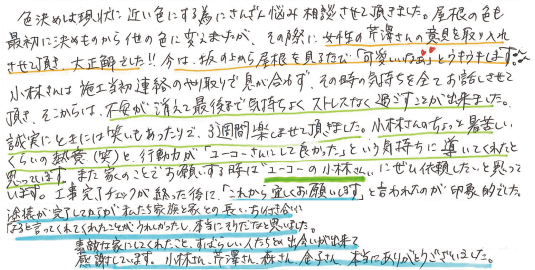 色決めは現状に近い色にする為にさんざん悩み相談させて頂きました。屋根の色も
最初に決めたものから他の色に変えましたが、その際に女性の芹澤さんの意見を取り入れ
させて頂き、大正解でした!!今は、坂の上から屋根を見るたびに「可愛いなぁ」とうきうきします
小林さんは施工当初連絡のやり取りで息が合わず、その時の気持ちを全てお話しさせて
頂き、そこからは、不安が消えて最後まで気持ちよくストレスなく過ごすことが出来ました。
誠実にときには笑いもあったりで、3週間楽しませて頂きました。小林さんのちょっと暑苦しい
くらいの熱意(笑)と、行動力が「ユーコーさんにして良かった」という気持ちに導いてくれたと
思っています。また家のことでお願いする時は"ユーコーの小林さん"にぜひ依頼したいと思って
います。工事完了チェックが終った後に、「これから宜しくお願いします」と言われたのが印象的でした。
塗装が完了してからが私たち家族と家との長いお付き合い
だと言ってくれてくれたことがうれしかったし、本当にそうだなと思いました。
素敵な家にしてくれたこと、すばらしい人たちとの出会いが出来て
感謝しています。小林さん、芹澤さん、森さん、金子さん、本当にありがとうございました。